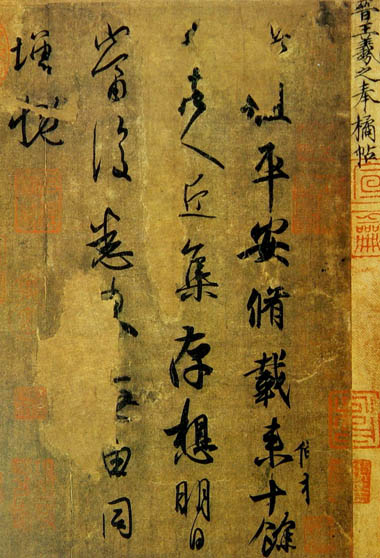 晉王羲之奉橘帖
此粗平安脩載來十餘
日諸人近集存想明日
當復悉來無由同
增慨